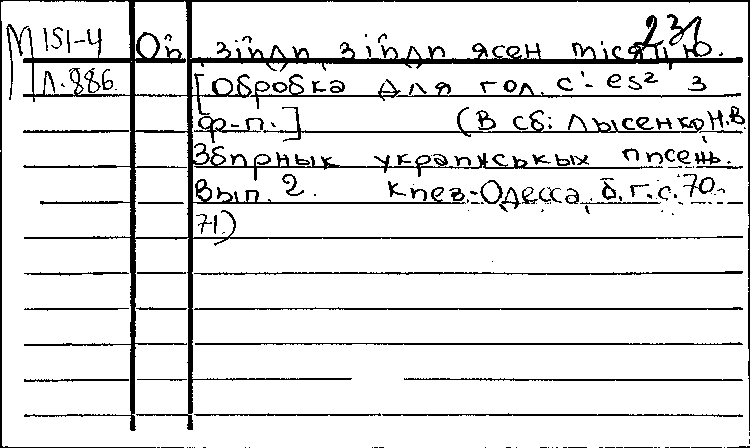 231
М 151-4 Ой, зійди, зійди ясен місяцю.
Л.886 [Обробка для гол. c¹- es² з
ф-п.] (В сб: Лысенко, Н.В
Збирнык украинськых писень.
Вып. 2. Киев-Одесса, б.г. с. 70-
71)